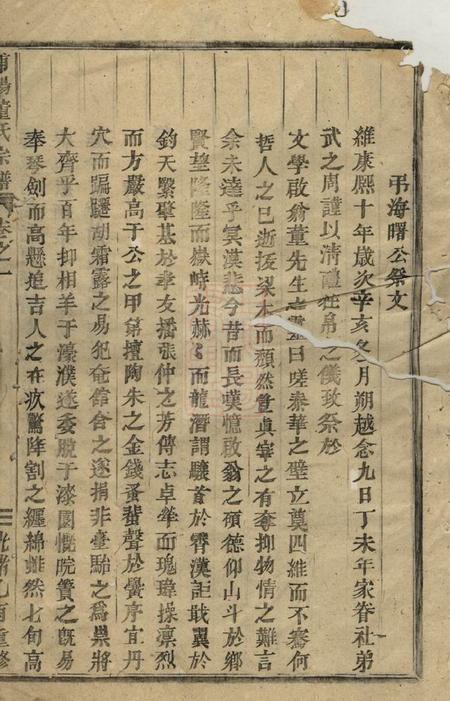 弔海曙公祭文
維康熈十年歳次辛亥冬月朔越念九日丁未年家眷社弟
武之周謹以清醴牲帛之儀致祭於
文學啟翁董先生之靈曰嗟泰華之壁立奠四維而不騫何
哲人之已逝抜梁木而頹然豈真宰之有奪抑物情之難言
余未達乎冥漠悲今昔而長嘆憶啟翁之碩德仰山斗於鄉
賢望隆隆而嶽峙光赫〻而龍潛謂驤首於霄漢詎戢翼於
鈞天緊肇基於孝友播張仲之芳傳志卓犖而瑰瑋操凛烈
而方嚴高于公之甲第擅陶朱之金錢蚤蜚聲於黌序宜丹
穴而蹁躚胡霜露之易犯奄館合之遂捐非臺駘之為祟將
大齊乎百年抑相羊于濠濮遂委脫于漆園慨院簀之既易
奉琴劍而高懸追吉人之在疚驚降割之纒綿雖然七旬高
董氏宗譜 卷之一
光緒乙酉重修